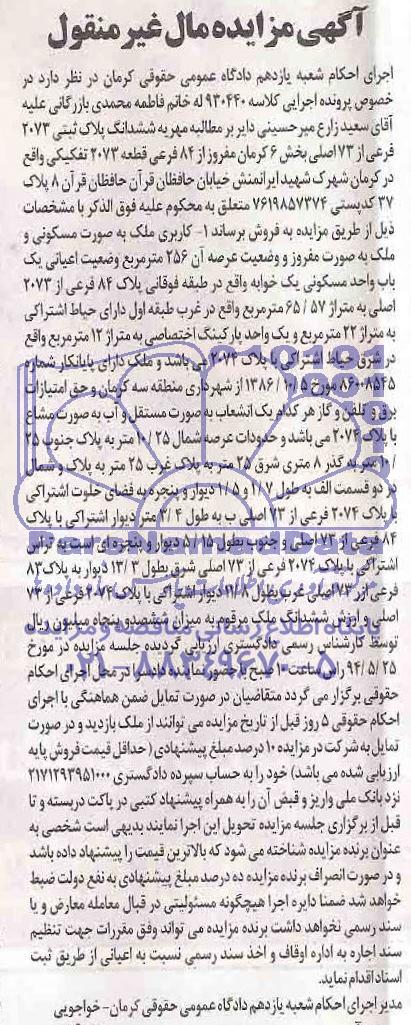 آگهی مزایده مال غیر منقول
اجرای احکام شعبه یازدهم دادگاه عمومی حقوقی کرمان در نظر دارد در
خصوص پرونده اجرایی کلاسه ۹۳۰۴۴۰ له خانم فاطمه محمدی بازرگانی علیه
آقای سعید زارع میرحسینی دایر بر مطالبه مهریه ششدانگ پلاک ثبتی ۲۰۷۳
فرعی از ۷۳ اصلی بخش ۶ کرمان مفروز از ۸۴ فرعی قطعه ۲۰۷۳ تفکیکی واقع
در کرمان شهرک شهید ایرانمنش خیابان حافظان قرآن حافظان قرآن ۸ پلاک
۳۷ کدپستی ۷۶۱۹۸۵۷۳۷۴ متعلق به محکوم علیه فوق الذکر با مشخصات
ذیل از طریق مزایده به فروش برساند ۱- کاربری ملک به صورت مسکونی و
ملک به صورت مفروز و وضعیت عرصه آن ۲۵۶ مترمربع وضعیت اعیانی یک
باب واحد مسکونی یک خوابه واقع در طبقه فوقانی پلاک ۸۴ فرعی از ۲۰۷۳
اصلی به متراژ ۶۵/۵۷ مترمربع واقع در غرب طبقه اول دارای حیاط اشتراکی
به متراژ ۲۲ مترمربع و یک واحد پارکینگ اختصاصی به متراژ ۱۲ مترمربع واقع
در شرق حیاط اشتراکی با پلاک ۲۰۷۴ می باشد و ملک دارای پایانکار شماره
۸۶۰۰۸۵۴۵ مورخ ۱۳۸۶/۱۰/۵ از شهرداری منطقه سه کرمان و حق امتیازات
برق و تلفن و گاز هر کدام یک انشعاب به صورت مستقل و آب به صورت مشاع
با پلاک ۲۰۷۴ می باشد و حدودات عرصه شمال ۱۰/۲۵ متر به پلاک جنوب ۲۵
/۱۰ متر به گذر ۸ متری شرق ۲۵ متر به پلاک غرب ۲۵ متر به پلاک و شمال
در دو قسمت الف به طول ۱/۷ و ۱/۵ دیوار و پنجره به فضای خلوت اشتراکی
با پلاک ۲۰۷۴ فرعی از ۷۳ اصلی ب به طول ۳/۴ متر دیوار اشتراکی با پلاک
۸۴ فرعی از ۷۳ اصلی و جنوب بطول ۵/۱۵ دیوار و پنجره ای است به تراس
اشتراکی پلاک ۲۰۷۴ فرعی از ۷۳ اصلی شرق بطول ۱۳/۳ دیوار به پلاک ۸۳
فرعی از ۷۳ اصلی غرب بطول ۱۱/۸ دیوار اشتراکی با پلاک ۲۰۷۴ فرعی از ۷۳
اصلی و ارزش ششدانگ ملک مرقوم به میزان ششصد و پنجاه میلیون ریال
توسط کارشناس رسمی دادگستری ارزیابی گردیده جلسه مزایده در مورخ
۹۴/۵/۲۵ راس ساعت ۱۰ صبح با حضور نماینده دادسرا در محل اجرای احکام
حقوقی برگزار می گردد متقاضیان در صورت تمایل ضمن هماهنگی با اجرای
احکام حقوقی ۵ روز قبل از تاریخ مزایده می توانند از ملک بازدید و در صورت
تمایل به شرکت در مزایده ۱۰ درصد مبلغ پیشنهادی (حداقل قیمت فروش پایه
ارزیابی شده می باشد) خود را به حساب سپرده دادگستری ۲۱۷۱۲۹۳۹۵۱۰۰۰
نزد بانک ملی واریز و قبض آن را به همراه پیشنهاد کتبی در پاکت دربسته و تا
قبل از برگزاری جلسه مزایده تحویل این اجرا نمایند بدیهی است شخصی به
عنوان برنده مزایده شناخته می شود که بالاترین قیمت را پیشنهاد داده باشد
و در صورت انصراف برنده مزایده ده درصد مبلغ پیشنهادی به نفع دولت ضبط
خواهد شد ضمنا دایره اجرا هیچگونه مسئولیتی در قبال معامله معارض و یا
سند رسمی نخواهد داشت برنده مزایده می تواند وفق مقررات جهت تنظیم
سند اجاره به اداره اوقاف و اخذ سند رسمی نسبت به اعیانی از طریق ثبت
اسناد اقدام نماید.
مدیر اجرای احکام شعبه یازدهم دادگاه عمومی حقوقی کرمان- خواجویی
پایگاه اطلاع رسانی مناقصه و مزایده
۰۲۱-۸۸۳۴۹۶۷۰-۵